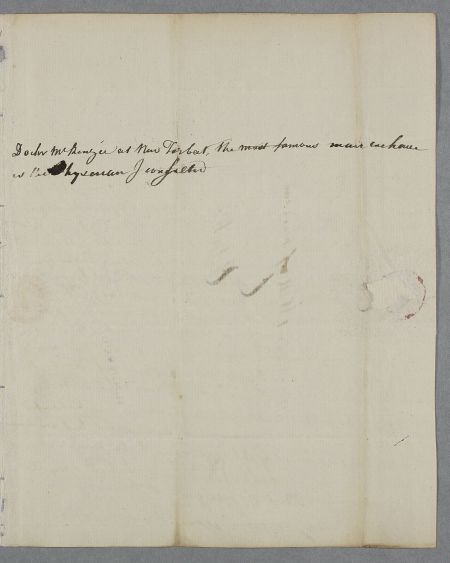 Doctr McKenzie at New Tarbat, the most famous man we have
is the Physecian I consulted